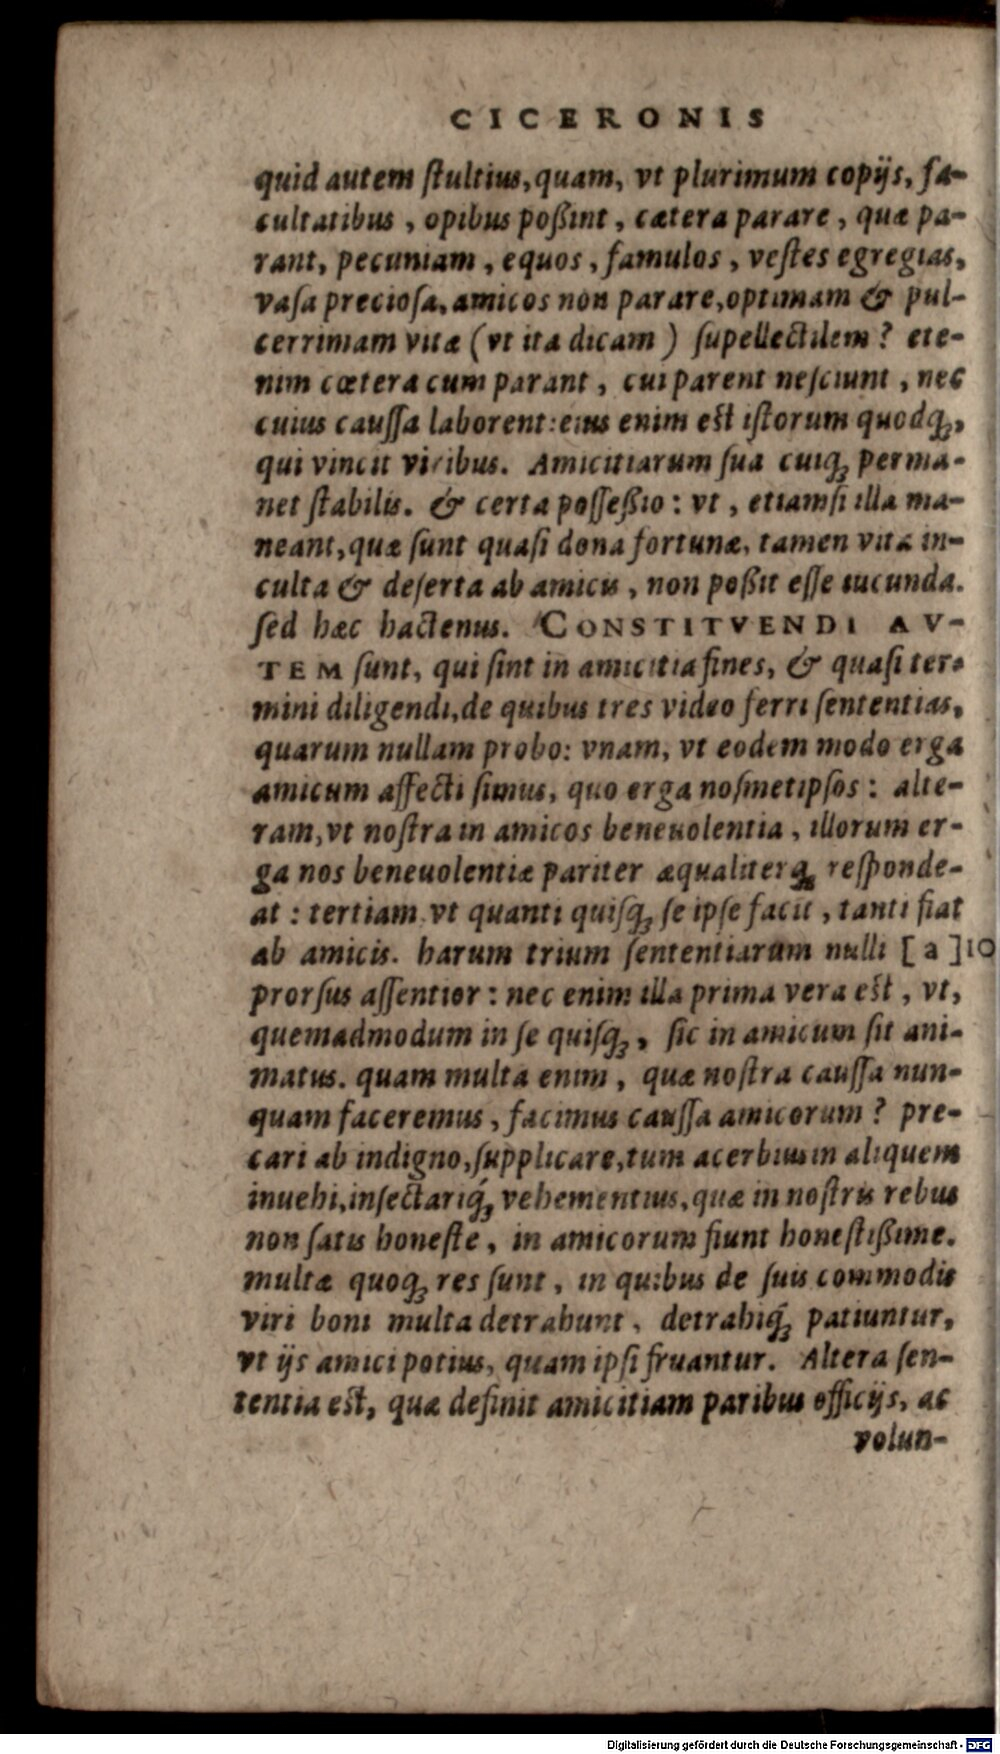 CICERONIS
quid autem ſtultius, quam, vt plurimum copijs, fa-
cultatibus , opibus poßint , cætera parare , quæ pa-
rant, pecuniam , equos , famulos , veſtes egregias,
vaſa precioſa, amicos non parare, optimam & pul-
cerrimam vitæ (vt ita dicam ) ſupellectilem ? ete-
nim cætera cum parant , cui parent neſciunt , nec
cuius cauſſa laborent: eius enim eſt iſtorum quodq́ꝫ,
qui vincit viribus. Amicitiarum ſua cuiqꝫ perma-
net ſtabilis. & certa poſſeßio : vt , etiamſi illa ma-
neant, quæ ſunt quaſi dona fortunæ, tamen vita in-
culta & deſerta ab amicis , non poßit eſſe iucunda.
ſed hæc hactenus. CONSTITVENDI AV-
TEM ſunt, qui ſint in amicitia fines, & quaſi ter-
mini diligendi, de quibus tres video ferri ſententias,
quarum nullam probo: vnam, vt eodem modo erga
amicum affecti ſimus, quo erga noſmetipſos : alte-
ram, vt noſtra in amicos beneuolentia , illorum er-
ga nos beneuolentiæ pariter æqualiterqꝫ reſponde-
at : tertiam vt quanti quiſqꝫ ſe ipſe facit , tanti fiat
ab amicis. harum trium ſententiarum nulli [ a ]10
prorſus aſſentior : nec enim illa prima vera eſt , vt,
quemadmodum in ſe quiſqꝫ, ſic in amicum ſit ani-
matus. quam multa enim , quæ noſtra cauſſa nun-
quam faceremus , facimus cauſſa amicorum ? pre-
cari ab indigno, ſupplicare, tum acerbius in aliquem
inuehi, inſectariq́ꝫ vehementius, quæ in noſtris rebus
non ſatis honeſte , in amicorum fiunt honeſtißime.
multæ quoqꝫ res ſunt , in quibus de ſuis commodis
viri boni multa detrahunt , detrahiq́ꝫ patiuntur,
vt ijs amici potius, quam ipſi fruantur. Altera ſen-
tentia eſt, quæ definit amicitiam paribus officijs, ac
volun-
Digitalisierung gefördert durch die Deutsche Forschungsgemeinschaft - DFG